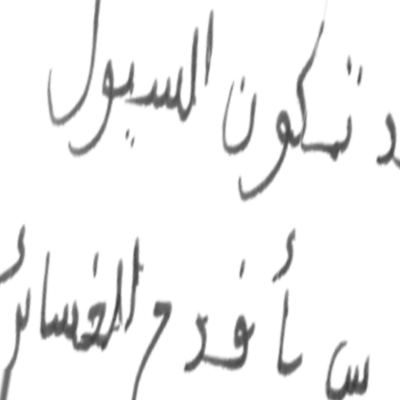 د تكون السيول
س بأفدح الخسائر